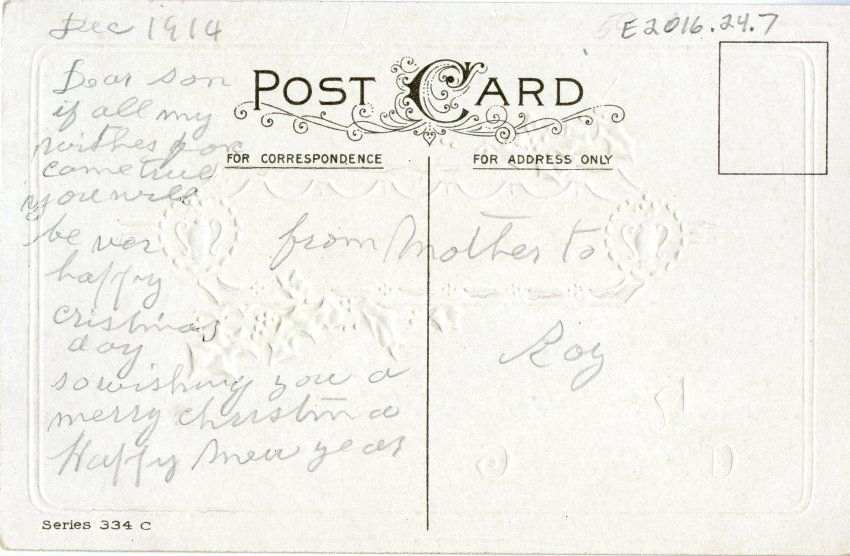 Dec 1914
E2016.24.7
POST CARD
FOR CORRESPONDENCE
FOR ADDRESS ONLY
Dear son
if all my
wishes
come true
you will
be ver
happy
cristmas
day
so wishing you a
merry christma
Happy New year
from Mother to
Roy
Series 334 C